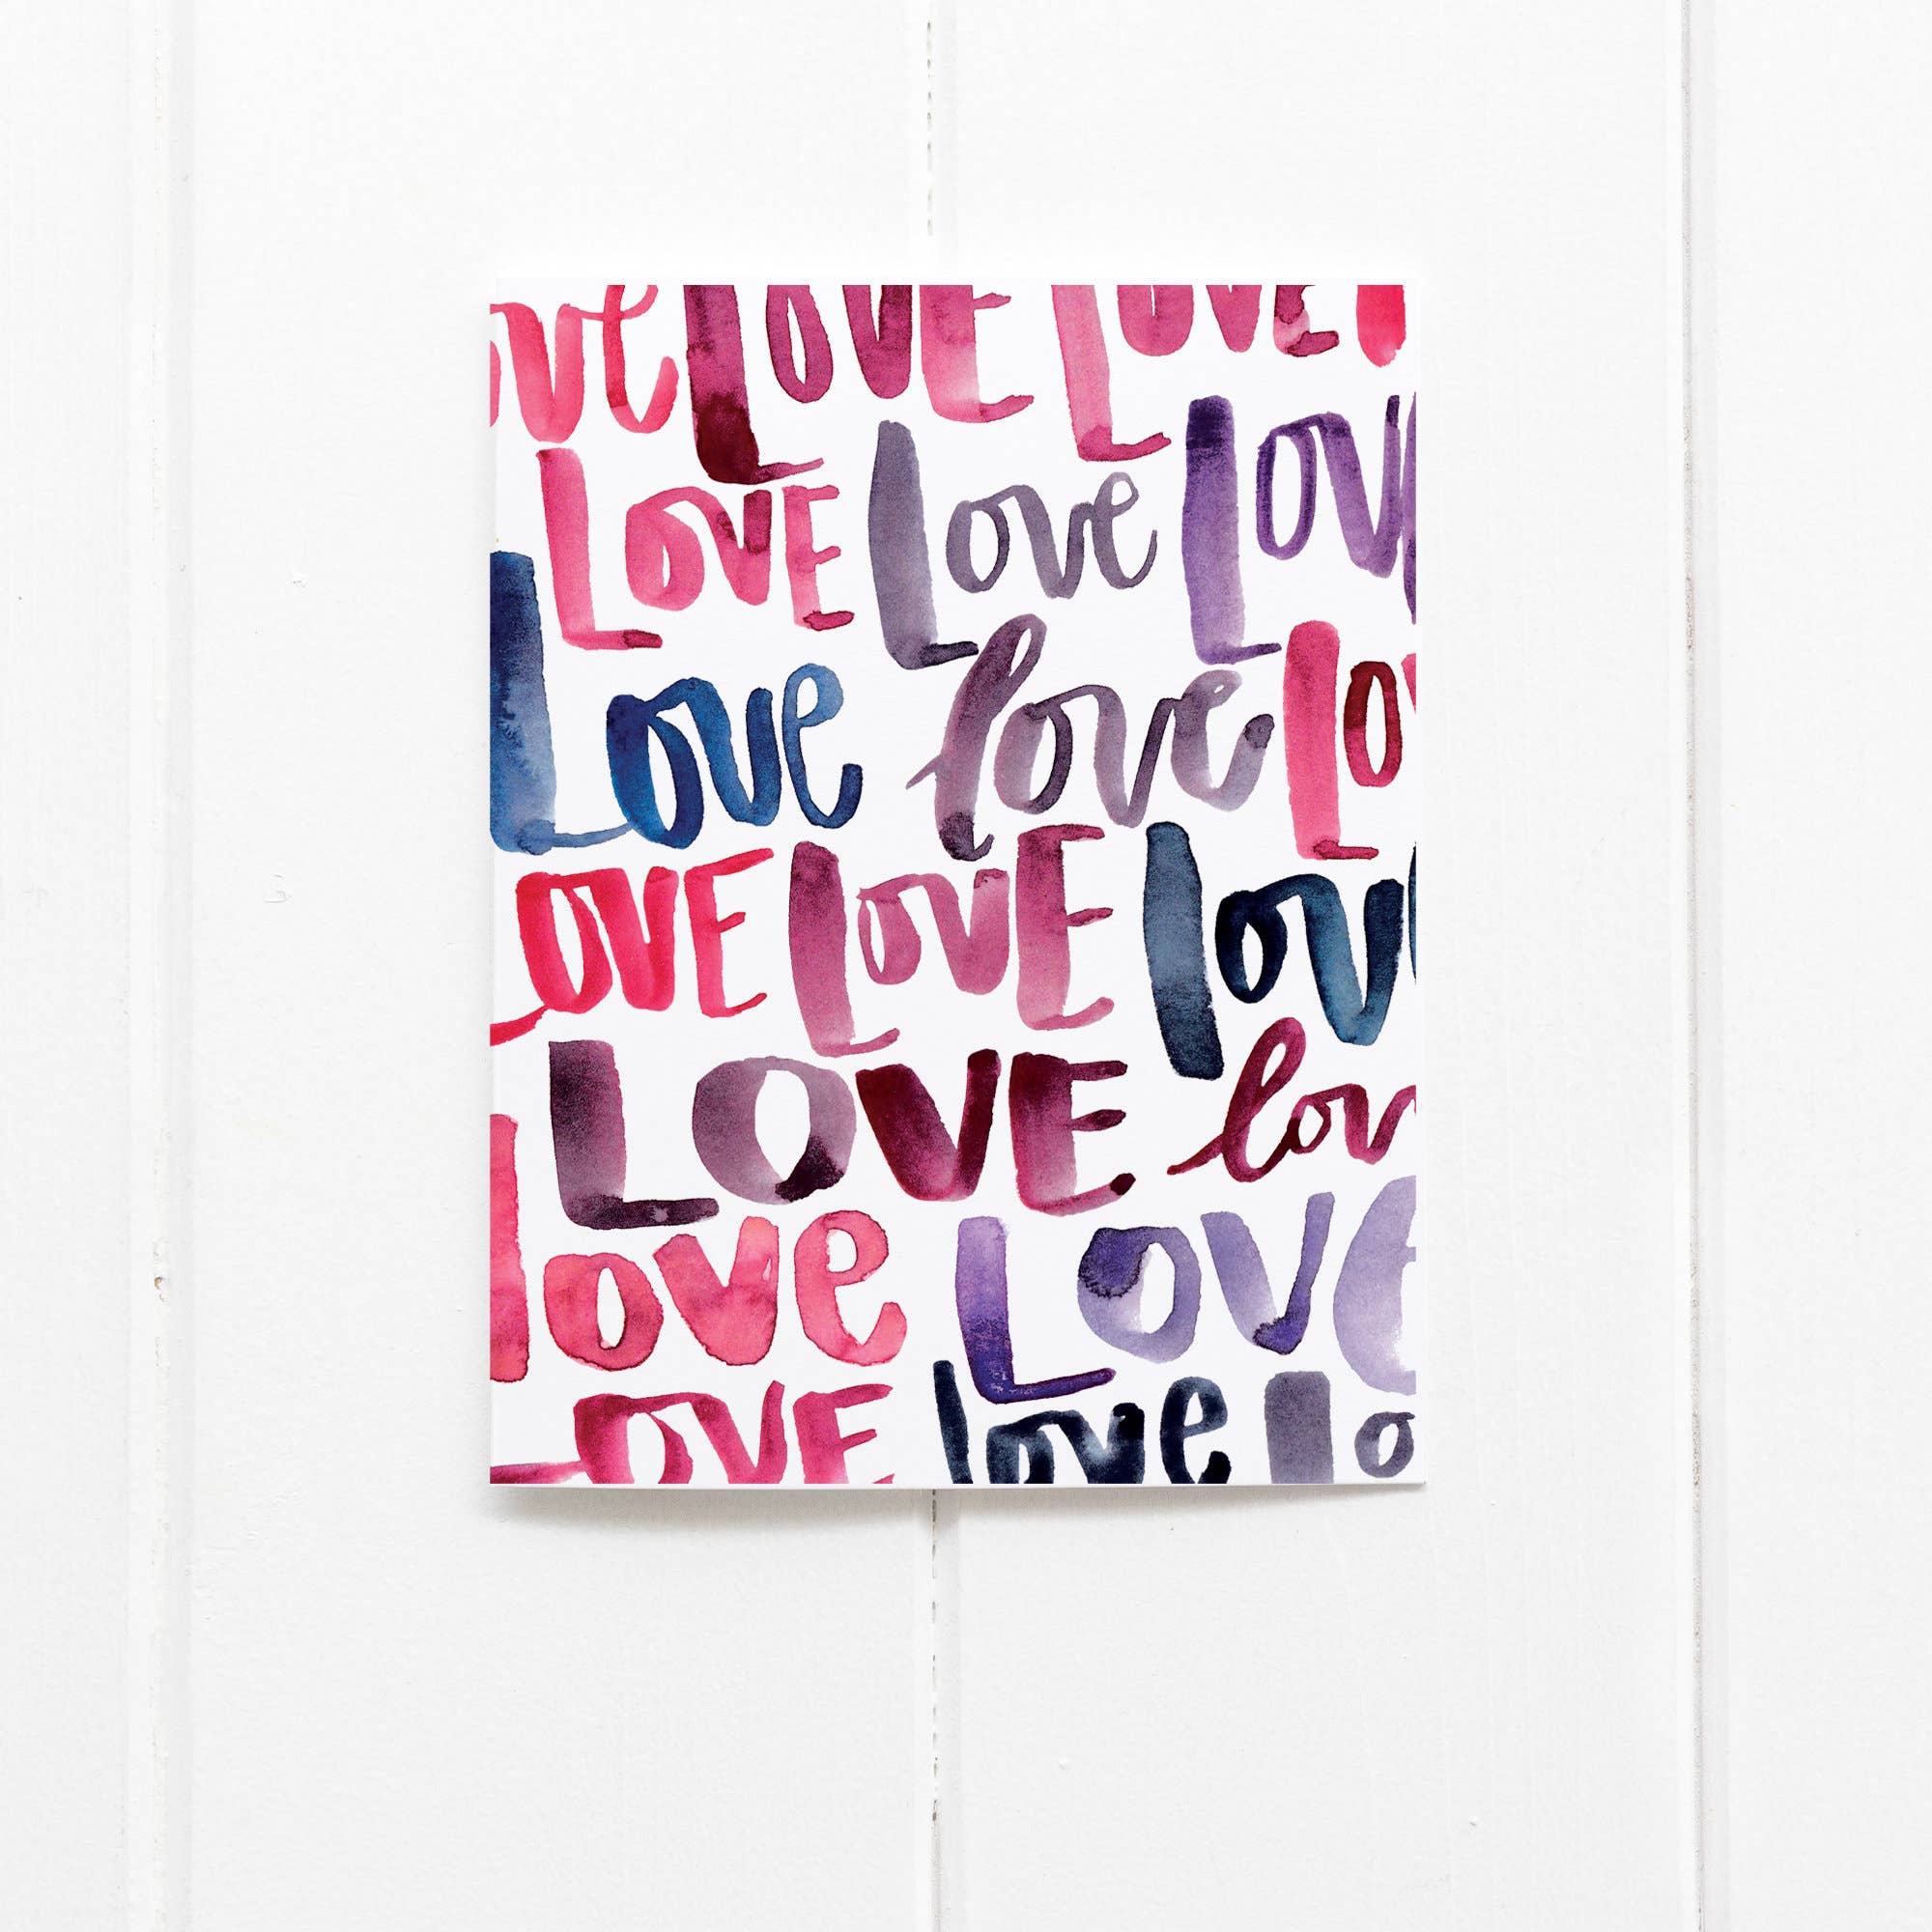 ove LOVE LOVE L
LOVE Love Lov
Love love Lo
LOVE LOVE lov
LOVE lov
love LOVE
LOVE love lo